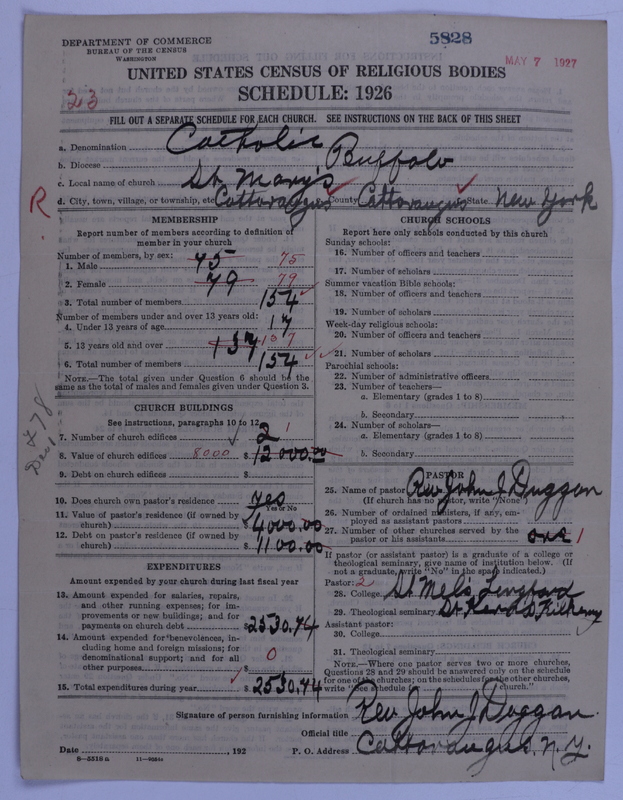 DEPARTMENT OF COMMERCE
BUREAU OF THE CENSUS
WASHINGTON
5828
MAY 7 1927
UNITED STATES CENSUS OF RELIGIOUS BODIES
SCHEDULE: 1926
23
FILL OUT A SEPARATE SCHEDULE FOR EACH CHURCH. SEE INSTRUCTIONS ON THE BACK OF THIS SHEET
a. Denomination Catholic
b. Diocese Buffalo
c. Local name of church St. Mary's
d. City, town, village, or township, etc Cattaraugus County Cattaraugus State New York
R
MEMBERSHIP
Report number of members according to definition of
member in your church
Number of members, by sex:
1. Male 75 75
2. Female 79 79
3. Total number of members 154
Number of members under and over 13 years old:
4. Under 13 years of age 17
5. 13 years old and over 137 137
6. Total number of members 154
NOTE.—The total given under Question 6 should be the
same as the total of males and females given under Question 3.
CHURCH BUILDINGS
See instructions, paragraphs 10 to 12
7. Number of church edifices 2 1
8. Value of church edifices 8000 $ 12000.00
9. Debt on church edifices $
10. Does church own pastor's residence yes
Yes or No
11. Value of pastor's residence (if owned by
church) $ 4000.00
12. Debt on pastor's residence (if owned by
church) $ 1100.00
EXPENDITURES
Amount expended by your church during last fiscal year
13. Amount expended for salaries, repairs,
and other running expenses; for im-
provements or new buildings; and for
payments on church debt $ 2530.74
14. Amount expended for benevolences, in-
cluding home and foreign missions; for
denominational support; and for all
other purposes $ 0
15. Total expenditures during year $ 2530.74
CHURCH SCHOOLS
Report here only schools conducted by this church
Sunday schools:
16. Number of officers and teachers
17. Number of scholars
Summer vacation Bible schools:
18. Number of officers and teachers
19. Number of scholars
Week-day religious schools:
20. Number of officers and teachers
21. Number of scholars
Parochial schools:
22. Number of administrative officers
23. Number of teachers—
a. Elementary (grades 1 to 8)
b. Secondary
24. Number of scholars—
a. Elementary (grades 1 to 8)
b. Secondary
PASTOR
25. Name of pastor Rev John J Duggan
(If church has no pastor, write "None")
26. Number of ordained ministers, if any, em-
ployed as assistant pastors
27. Number of other churches served by the
pastor or his assistants one 1
If pastor (or assistant pastor) is a graduate of a college or
theological seminary, give name of institution below. (If
not a graduate, write "No" in the space indicated.)
Pastor: 2
28. College St Mel's Longford
29. Theological seminary St Kilkenny
Assistant pastor:
30. College
31. Theological seminary
NOTE.—Where one pastor serves two or more churches,
Questions 28 and 29 should be answered only on the schedule
for one of the churches; on the schedules for the other churches,
write "See schedule for church."
Signature of person furnishing information Rev John J Duggan
Official title
Date , 192 P. O. Address Cattaraugus, N.Y.
8—5518 a